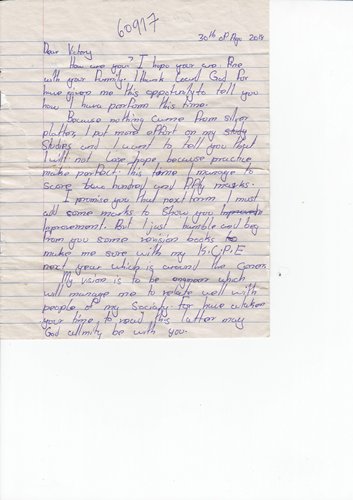 60917
30th of Ago 2018
Dear Victory
How are you? I hope your are fine
with your Family. I thank Lourd God for
have given me this opportunity to tell you
how I have perform this time.
Because nothing came from silver
platter, I put more effort on my study
studies and I want to tell you that
I will not lose hope, because practice
make perfect. this time I manage to
score two hundred and fifty marks.
I promise you that next term I must
add some marks to show you
Improvement. But I just humble and beg
from you some revision books to
make me sure with my K.C.P.E
next year which is around the Corner.
My vision is to be engineer which
will manage me to relate well with
people of my Society. For have taken
your time to read this latter may
God allmity be with you.